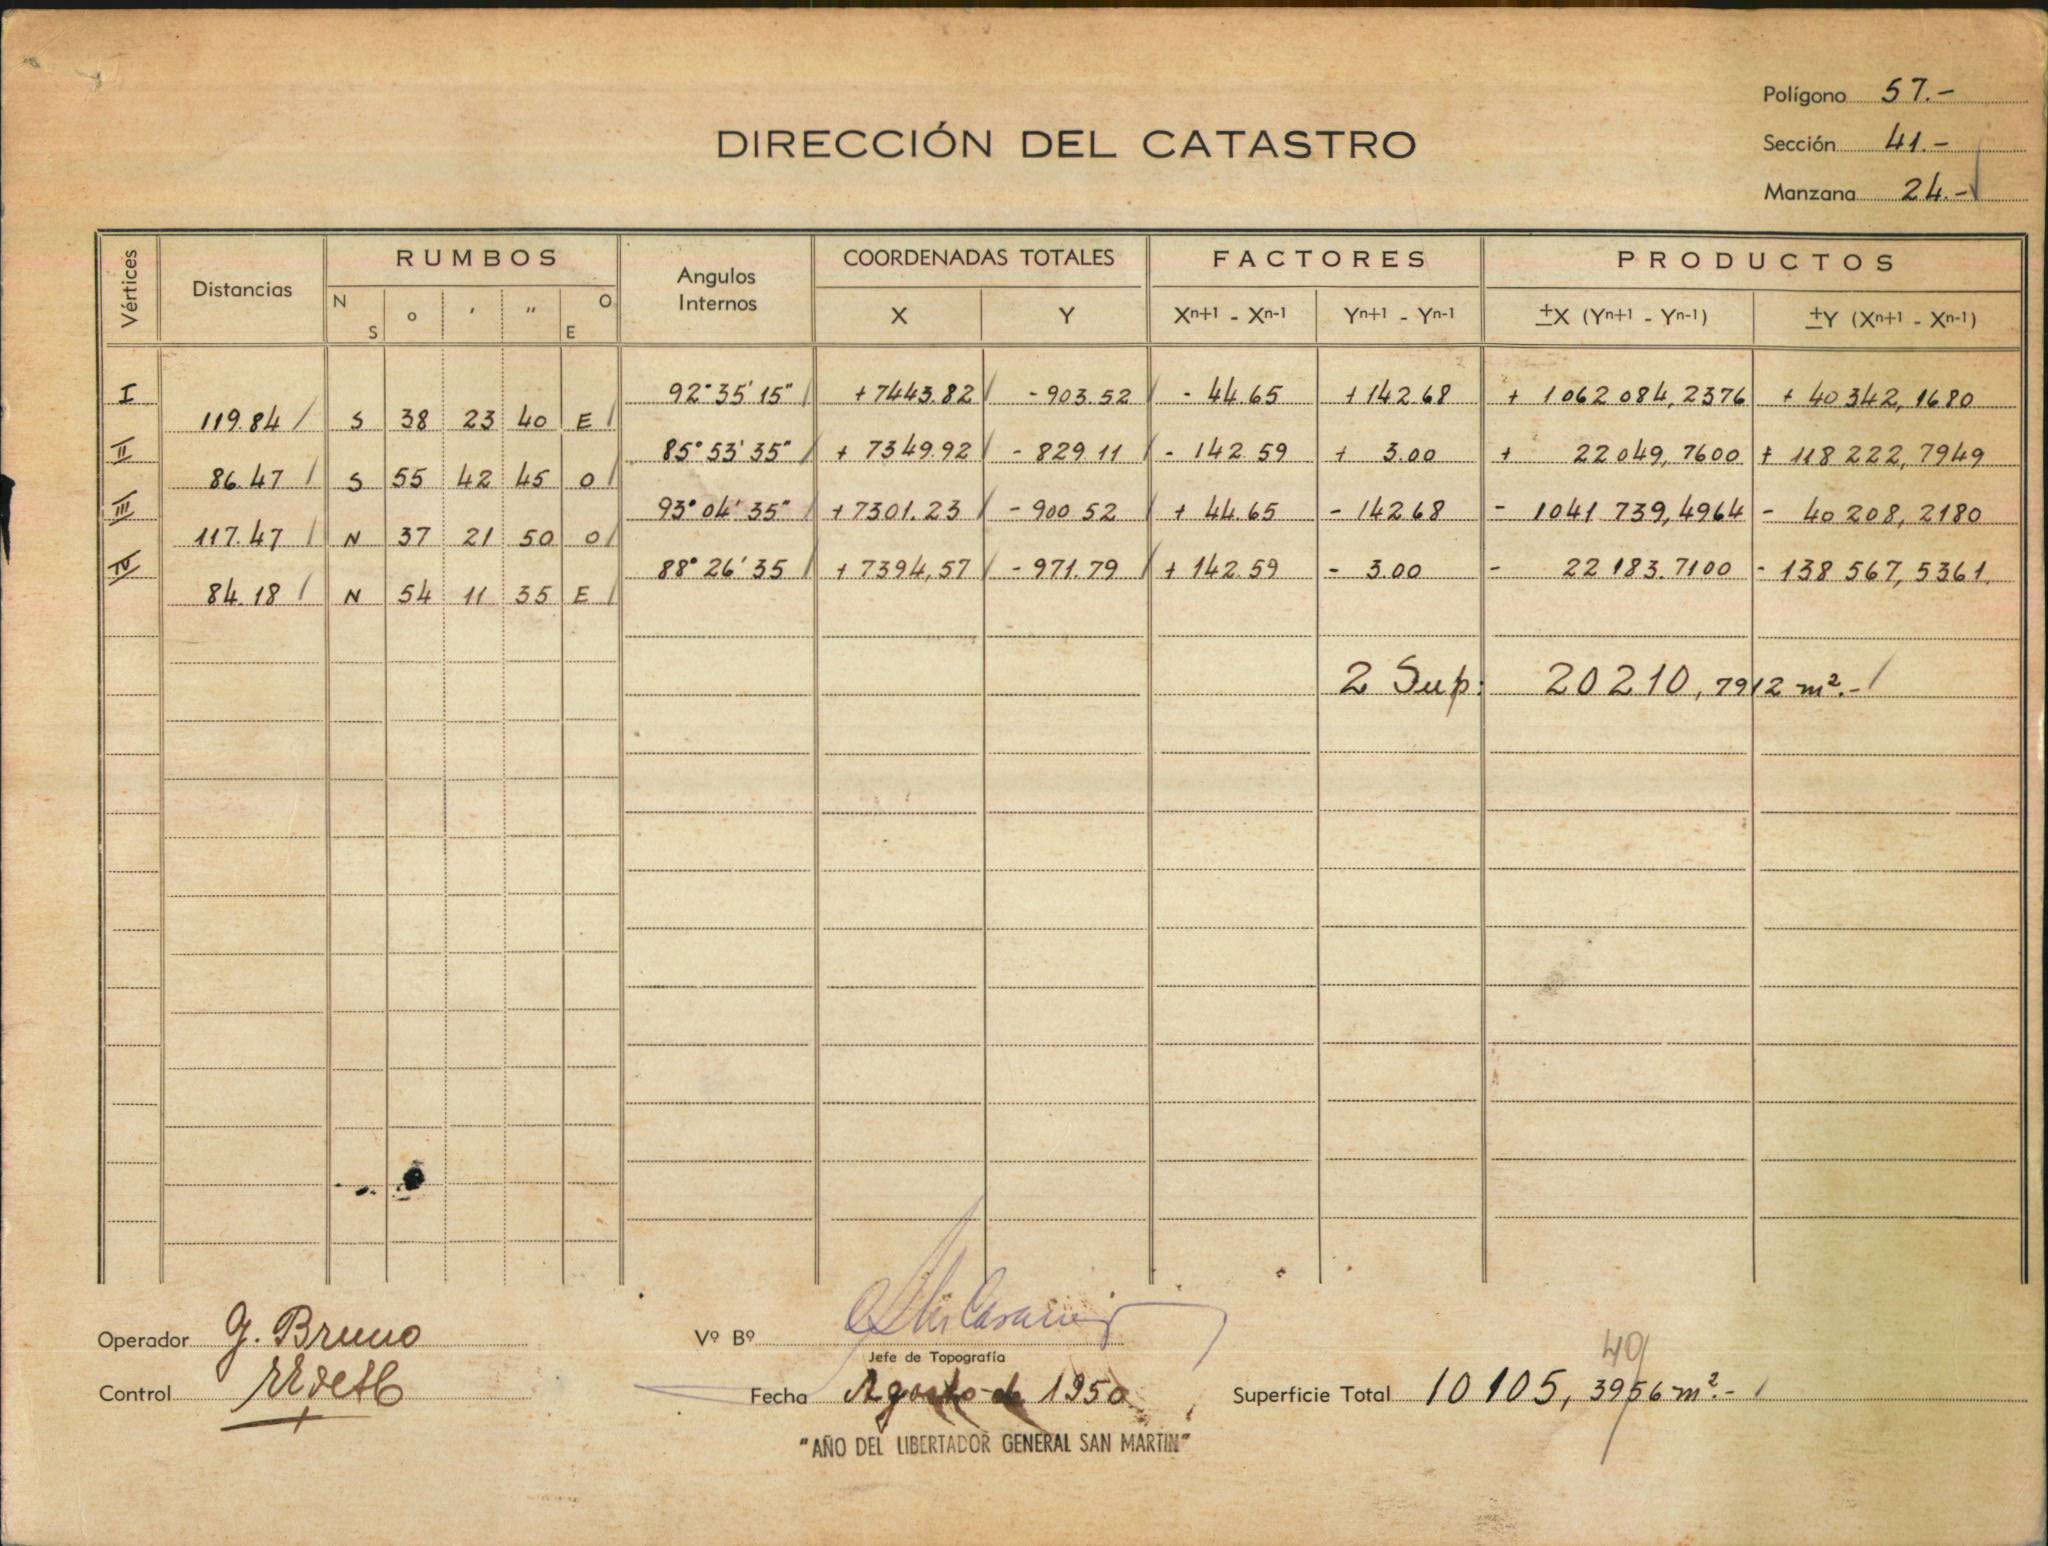 Polígono 57.-
DIRECCIÓN DEL CATASTRO
Sección 41.-
Manzana 24.-
Vértices Distancias RUMBOS Angulos Internos COORDENADAS TOTALES FACTORES PRODUCTOS
N S ° ' " O E X Y Xn+1 - Xn-1 Yn+1 - Yn-1 ±X (Yn+1 - Yn-1) ±Y (Xn+1 - Xn-1)
I 92° 35' 15" +7443.82 -903.52 - 44.65 +142.68 + 1062 084,2376 + 40 342,1680
119.84 S 38 23 40 E
II 85° 53' 35" + 7349.92 - 829.11 - 142.59 + 3.00 + 22 049,7600 + 118 222,7949
86.47 S 55 42 45 O
III 93° 04' 35" +7301.23 -900.52 + 44.65 - 142.68 - 1041 739,4964 - 40 208,2180
117.47 N 37 21 50 O
IV 88° 26' 35 + 7394,57 - 971.79 + 142.59 - 3.00 - 22 183.7100 - 138 567,5361
84.18 N 54 11 35 E
2 Sup: 20210,7912 m².-
Operador G. Bruno
Vº Bº
Jefe de Topografía
40
Control
Fecha Agosto de 1950
Superficie Total 10105,3956 m².-
"AÑO DEL LIBERTADOR GENERAL SAN MARTIN"